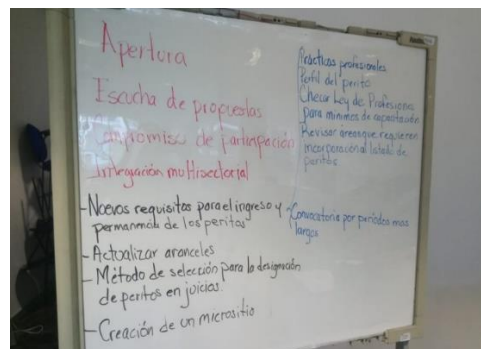 Apertura
Escucha de propuestas
Compromiso de participación
Integración multisectorial
-Nuevos requisitos para el ingreso y
permanencia de los peritos
-Actualizar aranceles
-Método de selección para la designación
de peritos en juicios.
-Creación de un micrositio
Prácticas profesionales
Perfil del perito
Checar Ley de Profesiones
para mínimos de capacitación
Revisar areas que requieren
incorporación al listado de
peritos.
-Convocatoria por periodos mas
largos